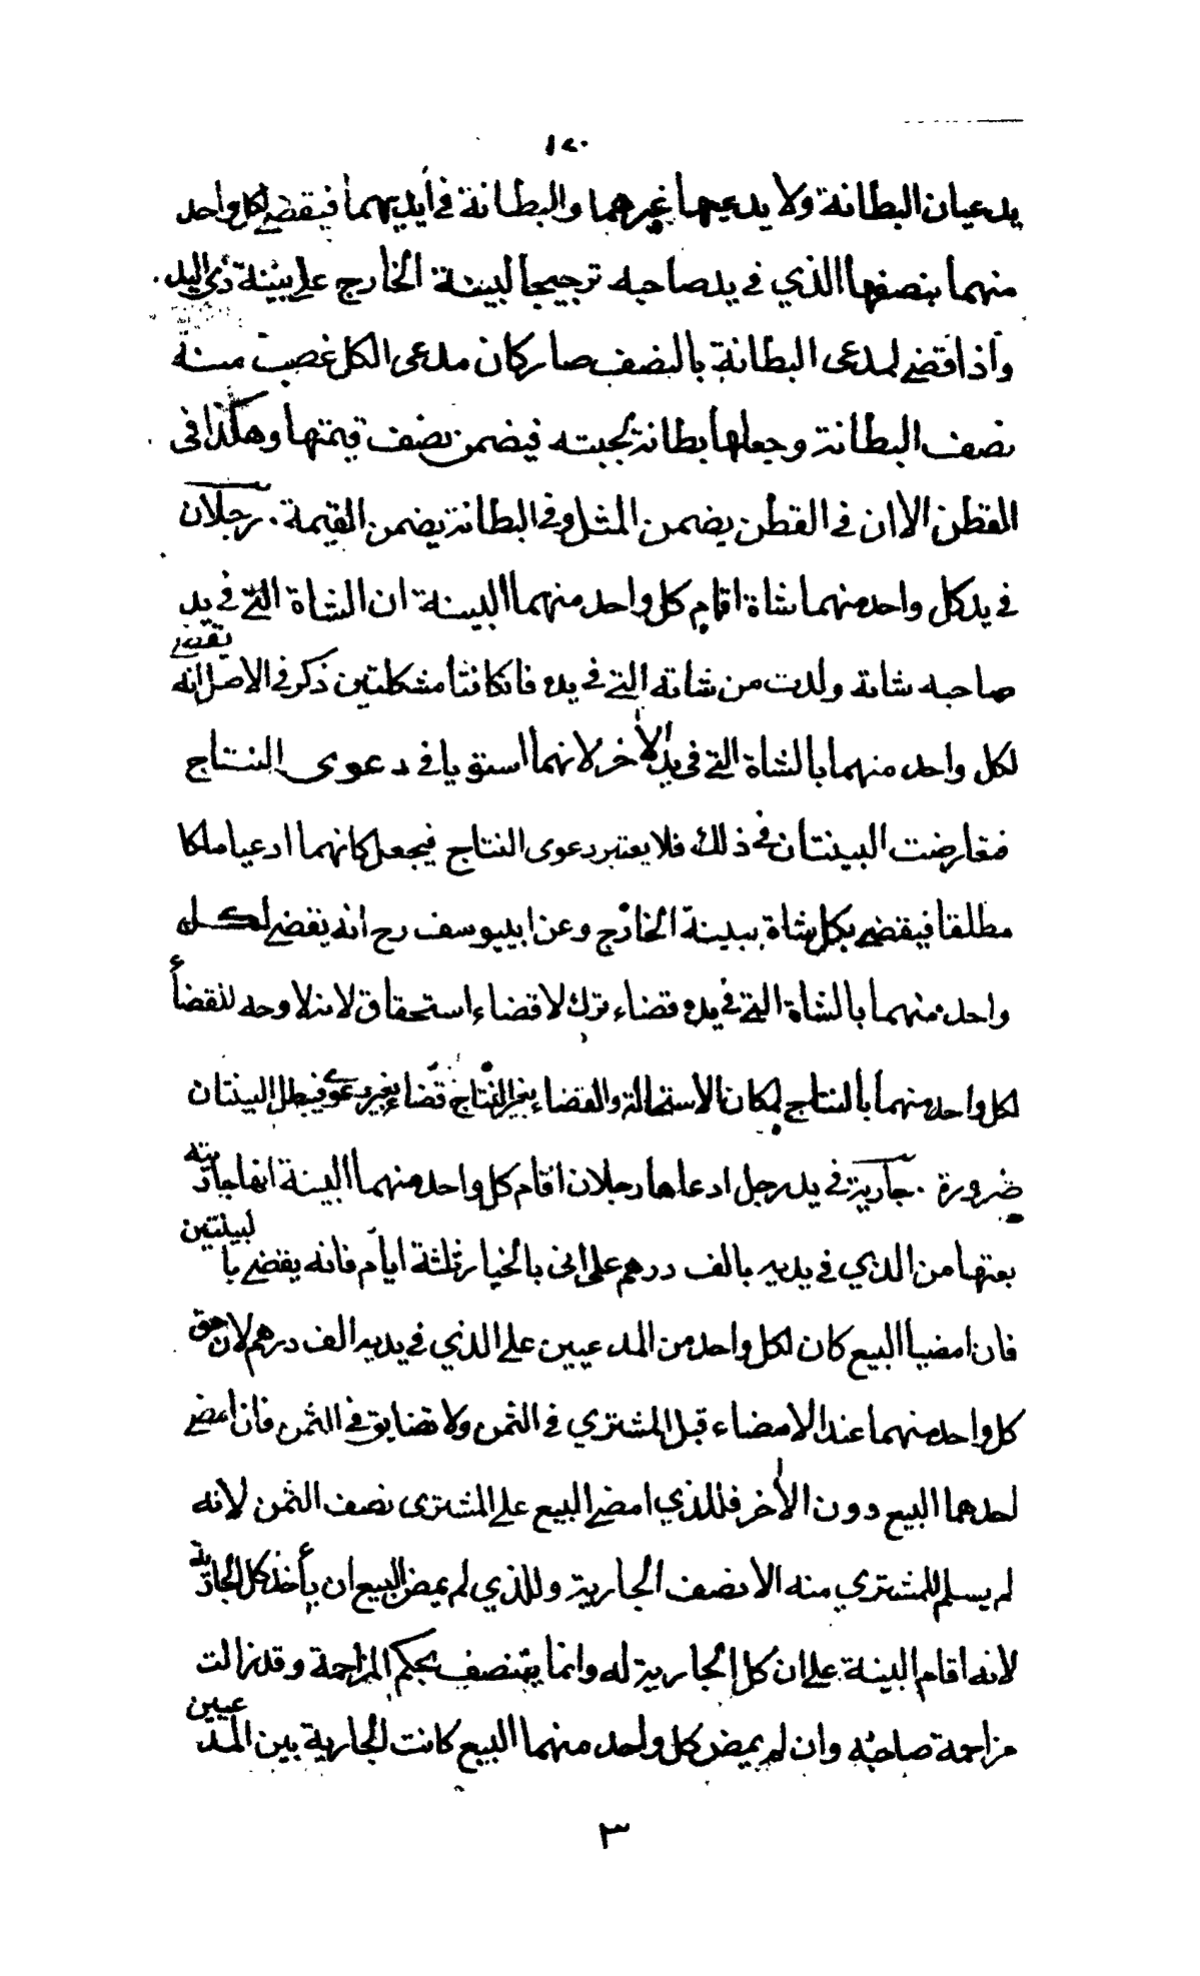 ١٢٠
يدعيان البطانة ولا يدعيها غيرهما والبطانة في أيديهما فيقضى لكل واحد
منهما بنصفها الذي في يد صاحبه ترجيحا لبينة الخارج على بينة ذي اليد
واذا قضى لمدعى البطانة بالنصف صار كان مدعى الكل غصب منه
نصف البطانة وجعلها بطانة لجبته فيضمن نصف قيمتها وهكذا فى
القطن الا ان في القطن يضمن المثل وفي البطانة يضمن القيمة . رجلان
في يد كل واحد منهما شاة اقام كل واحد منهما البينة ان الشاة التي في يد
صاحبه شاته ولدت من شاته التي في يده فان كانتا مشكلتين ذكر في الاصل انه يقضى
لكل واحد منهما بالشاة التي فى يد الاخر لانهما استويا في دعوى النتاج
فتعارضت البينتان في ذلك فلا يعتبر دعوى النتاج فيجعل كانهما ادعيا ملكا
مطلقا فيقضى بكل شاة ببينة الخارج وعن ابييوسف رح انه يقضى لكل
واحد منهما بالشاة التي في يده قضاء ترك لا قضاء استحقاق لانه لا وجه للقضأ
لكل واحد منهما بالنتاج لمكان الاستحالة والقضاء بغير النتاج قضاء بغير دعوى فيبطل البينتان
ضرورة . جارية في يد رجل ادعاها رجلان اقام كل واحد منهما البينة انها جاريته
بعتها من الذي في يديه بالف درهم على انى بالخيار ثلثة ايام فانه يقضى بالبينتين
فان امضيا البيع كان لكل واحد من المدعيين على الذي في يديه الف درهم لان حق
كل واحد منهما عند الامضاء قبل المشتري في الثمن ولا تضايق في الثمن فان امضى
احدهما البيع دون الاخر فللذي امضى البيع على المشترى نصف الثمن لانه
لم يسلم للمشتري منه الا نصف الجارية وللذي لم يمض البيع ان يأخذ كل الجارية
لانه اقام البينة على ان كل الجارية له وانما يتنصف بحكم المزاحمة وقد زالت
مزاحمة صاحبه وان لم يمض كل واحد منهما البيع كانت الجارية بين المدعيين
٣